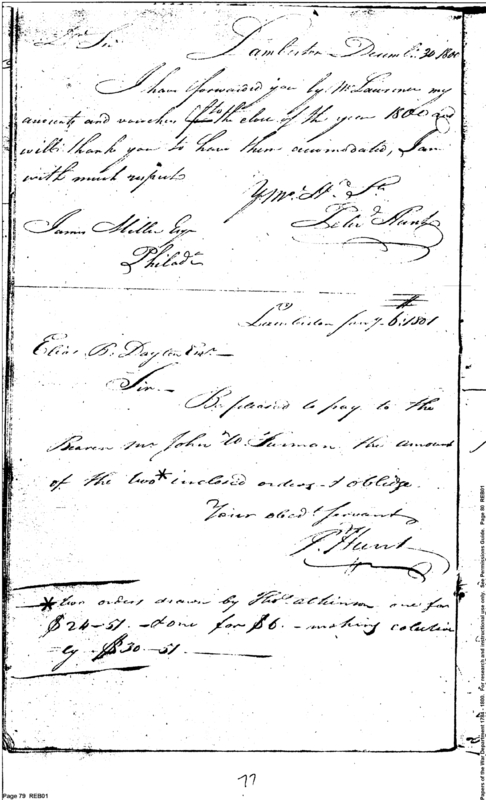 Dr Sir Lamberton Decemb. 30 1800
I have forwarded you by Mr Lawrence my
accounts and vouchers to the close of the year 1800 and
will thank you to have them accomodated, I am
with much respect
Yr Mo. H. St.
Peter Hunt
James Miller Esqr
Philada
(79)
Lamberton Jany. 6. 1801
Elias B. Dayton Esqr. —
Sir —
Be pleased to pay to the
Bearer Mr John W. Furman the amount
of the two * inclosed orders & oblidge
Your obedt. servant
P. Hunt
* two orders drawn by Tho's. Atkinson one for
$24-51. — & one for $6. — making
$30-51. —
77
Page 79 REB01
Papers of the War Department 1784 - 1800. For research and instructional use only. See Permissions Guide. Page 80 REB01